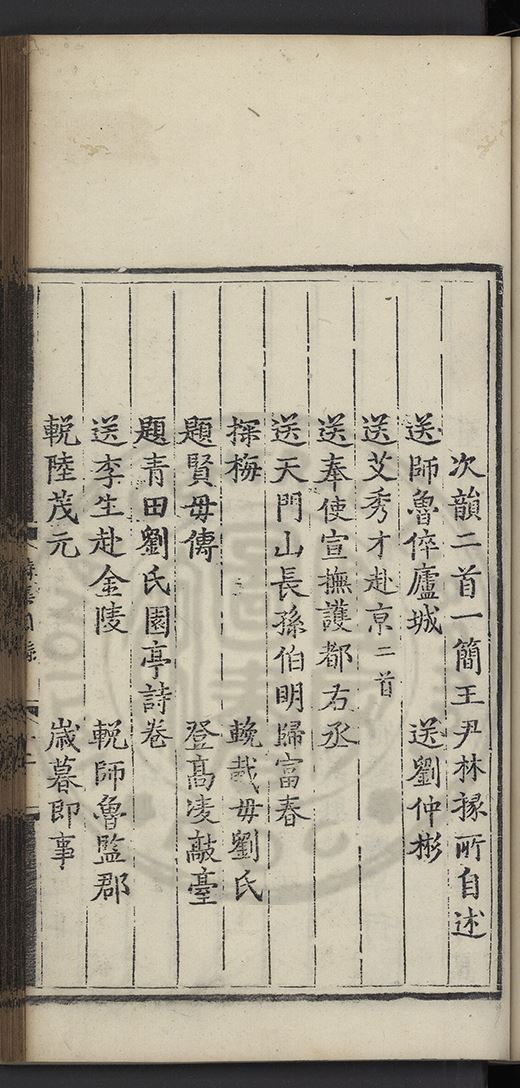 次韻二首一簡王尹林掾一所自述
送師魯倅廬城　送劉仲彬
送艾秀才赴京二首
送奉使宣撫護都右丞
送天門山長孫伯明歸富春
探梅　輓戴母劉氏
題賢母傳　登高凌敲臺
題青田劉氏園亭詩卷
送李生赴金陵　輓師魯監郡
輓陸茂元　歲暮即事